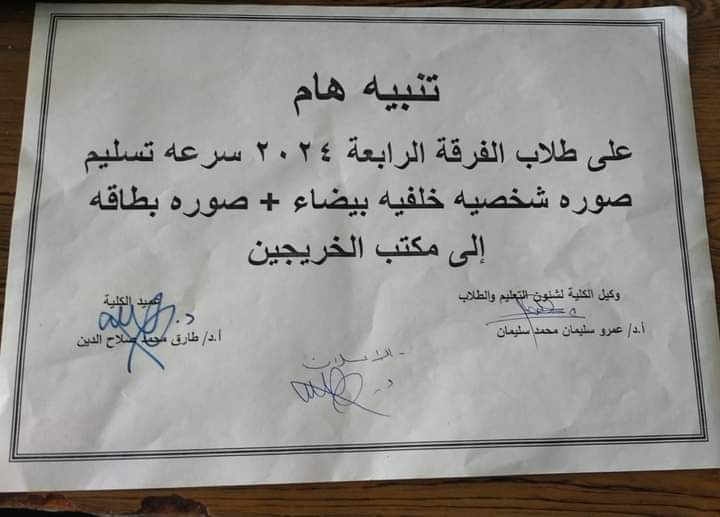 تنبيه هام
على طلاب الفرقة الرابعة ٢٠٢٤ سرعه تسليم
صوره شخصيه خلفيه بيضاء + صوره بطاقه
إلى مكتب الخريجين
وكيل الكلية لشئون التعليم والطلاب
أ.د/ عمرو سليمان محمد سليمان
عميد الكلية
أ.د/ طارق محمد صلاح الدين